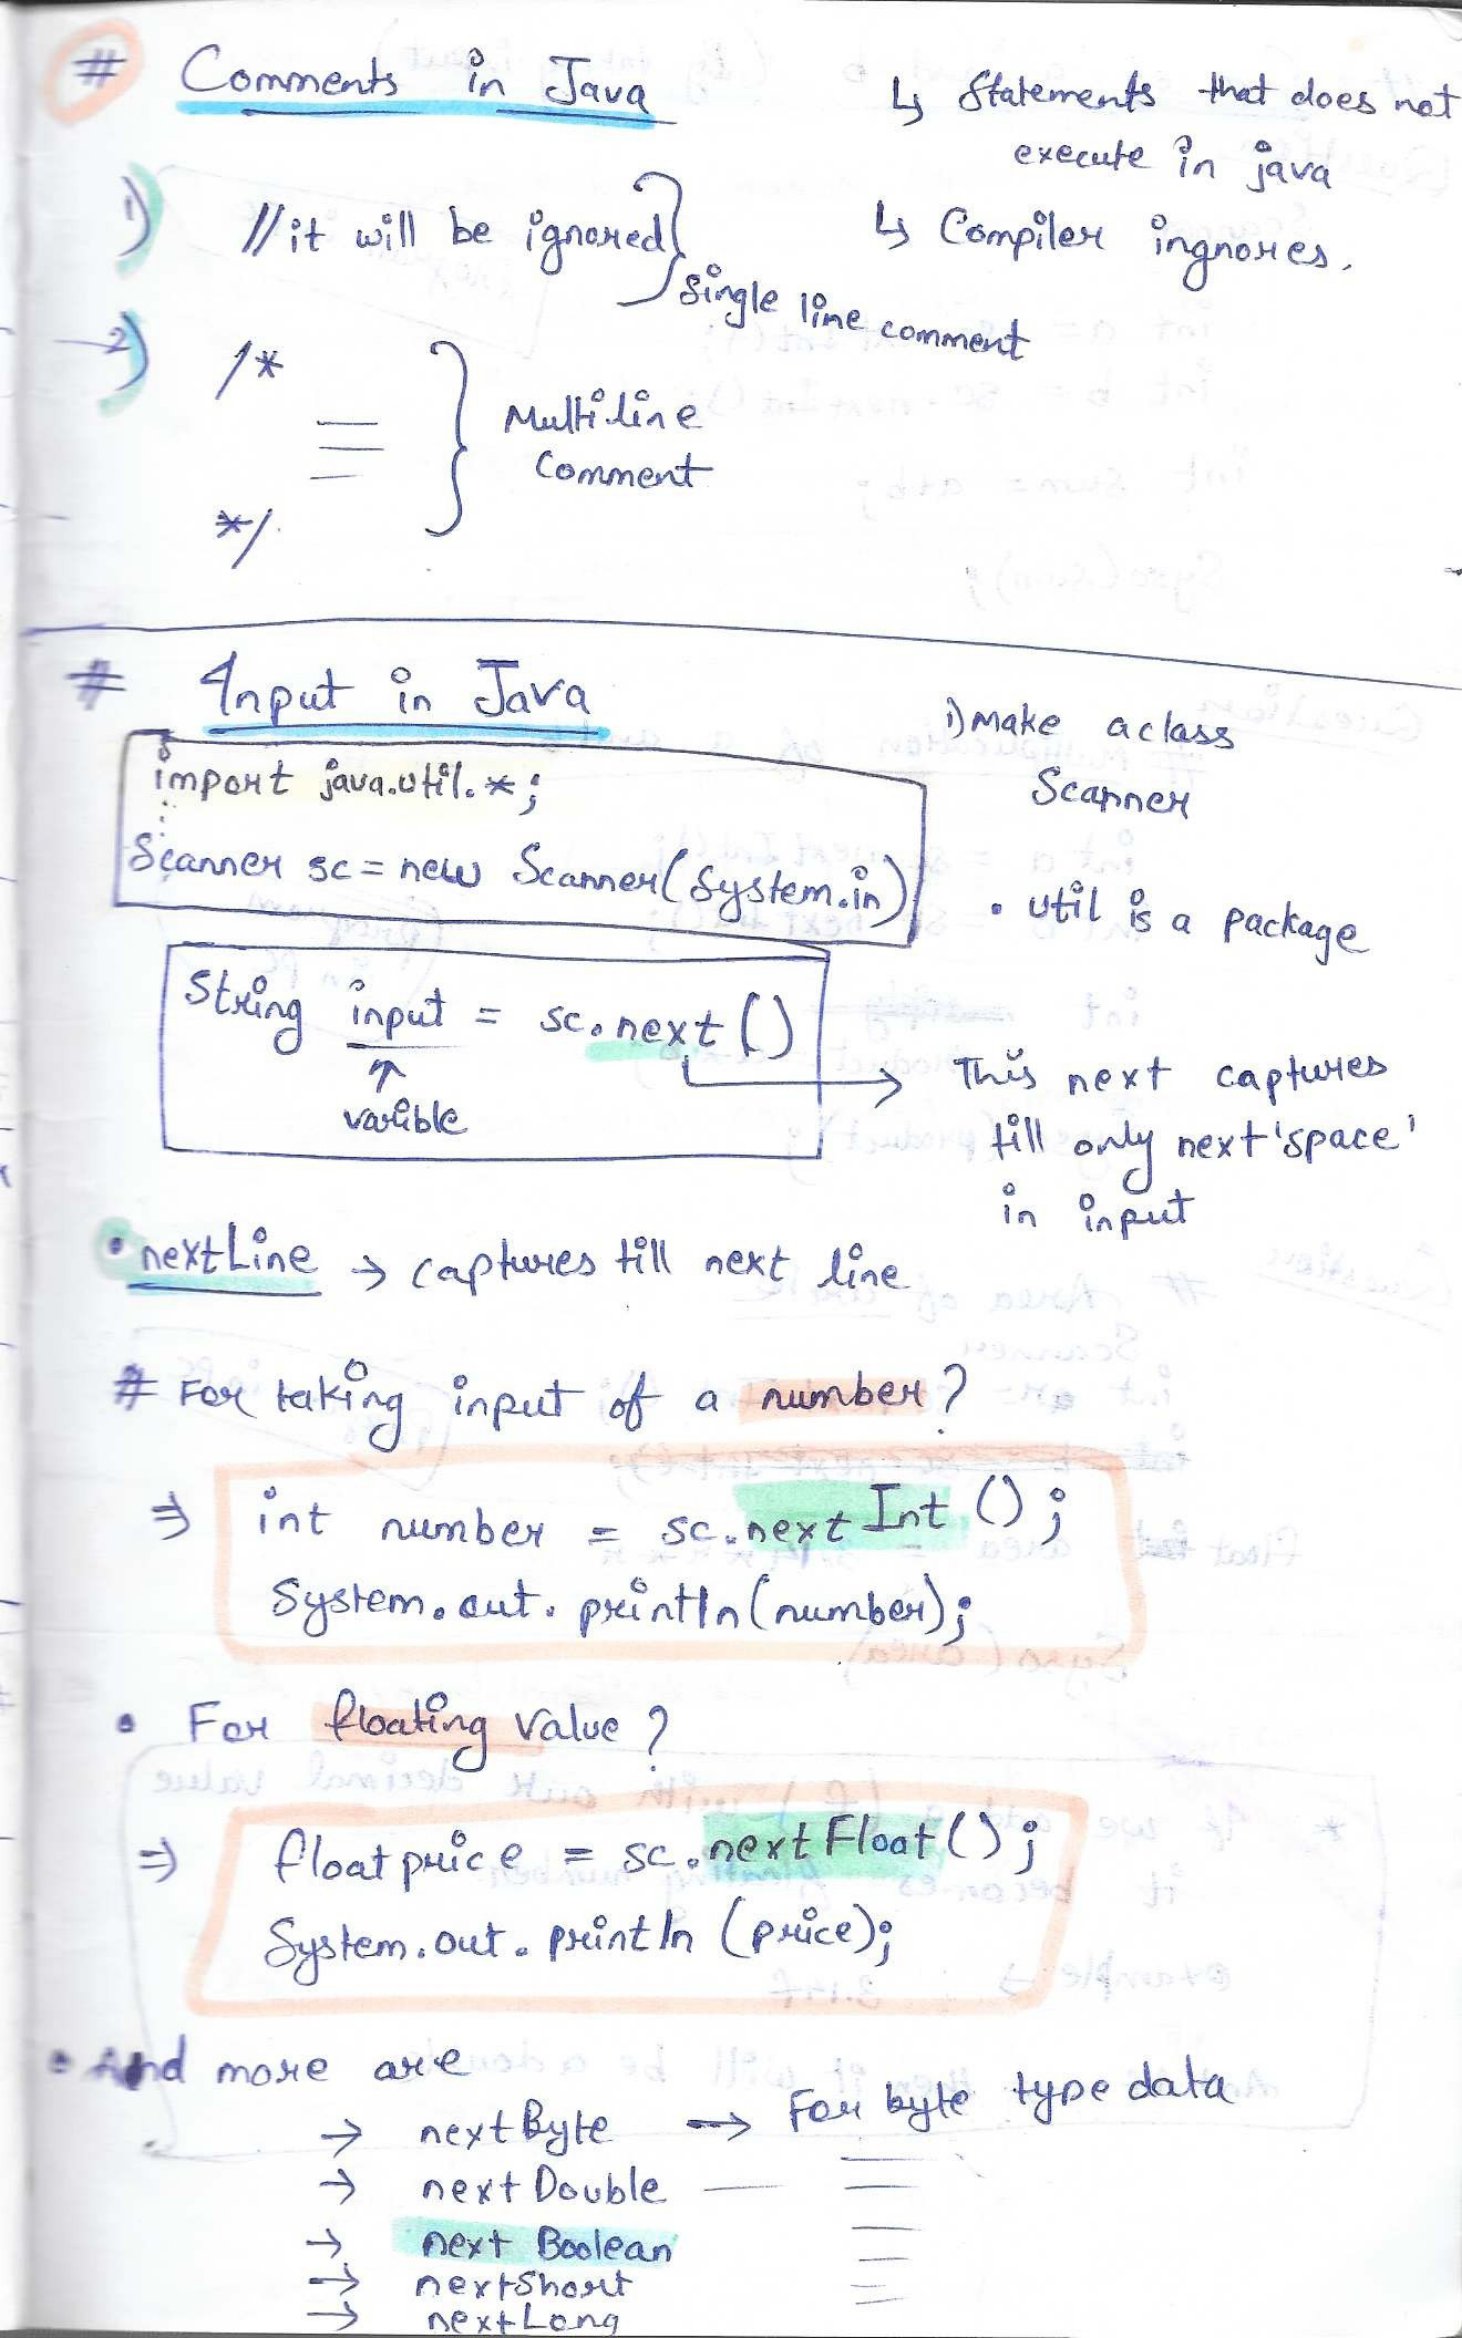 # Comments in Java
↳ Statements that does not
execute in java
↳ Compiler ingnores.
1) //it will be ignored } Single line comment
2) /*
Multiline
Comment
*/
# Input in Java
import java.util.*;
Scanner sc = new Scanner(System.in)
1) Make a class
Scanner
• util is a package
String input = sc.next()
↑
varible
→ This next captures
till only next 'space'
in input
• nextLine → captures till next line
# For taking input of a number?
⇒ int number = sc.nextInt();
System.out.println(number);
• For floating value?
⇒ float price = sc.nextFloat();
System.out.println(price);
• And more are
→ nextByte → For byte type data
→ nextDouble —
→ next Boolean
→ nextShort
→ nextLong